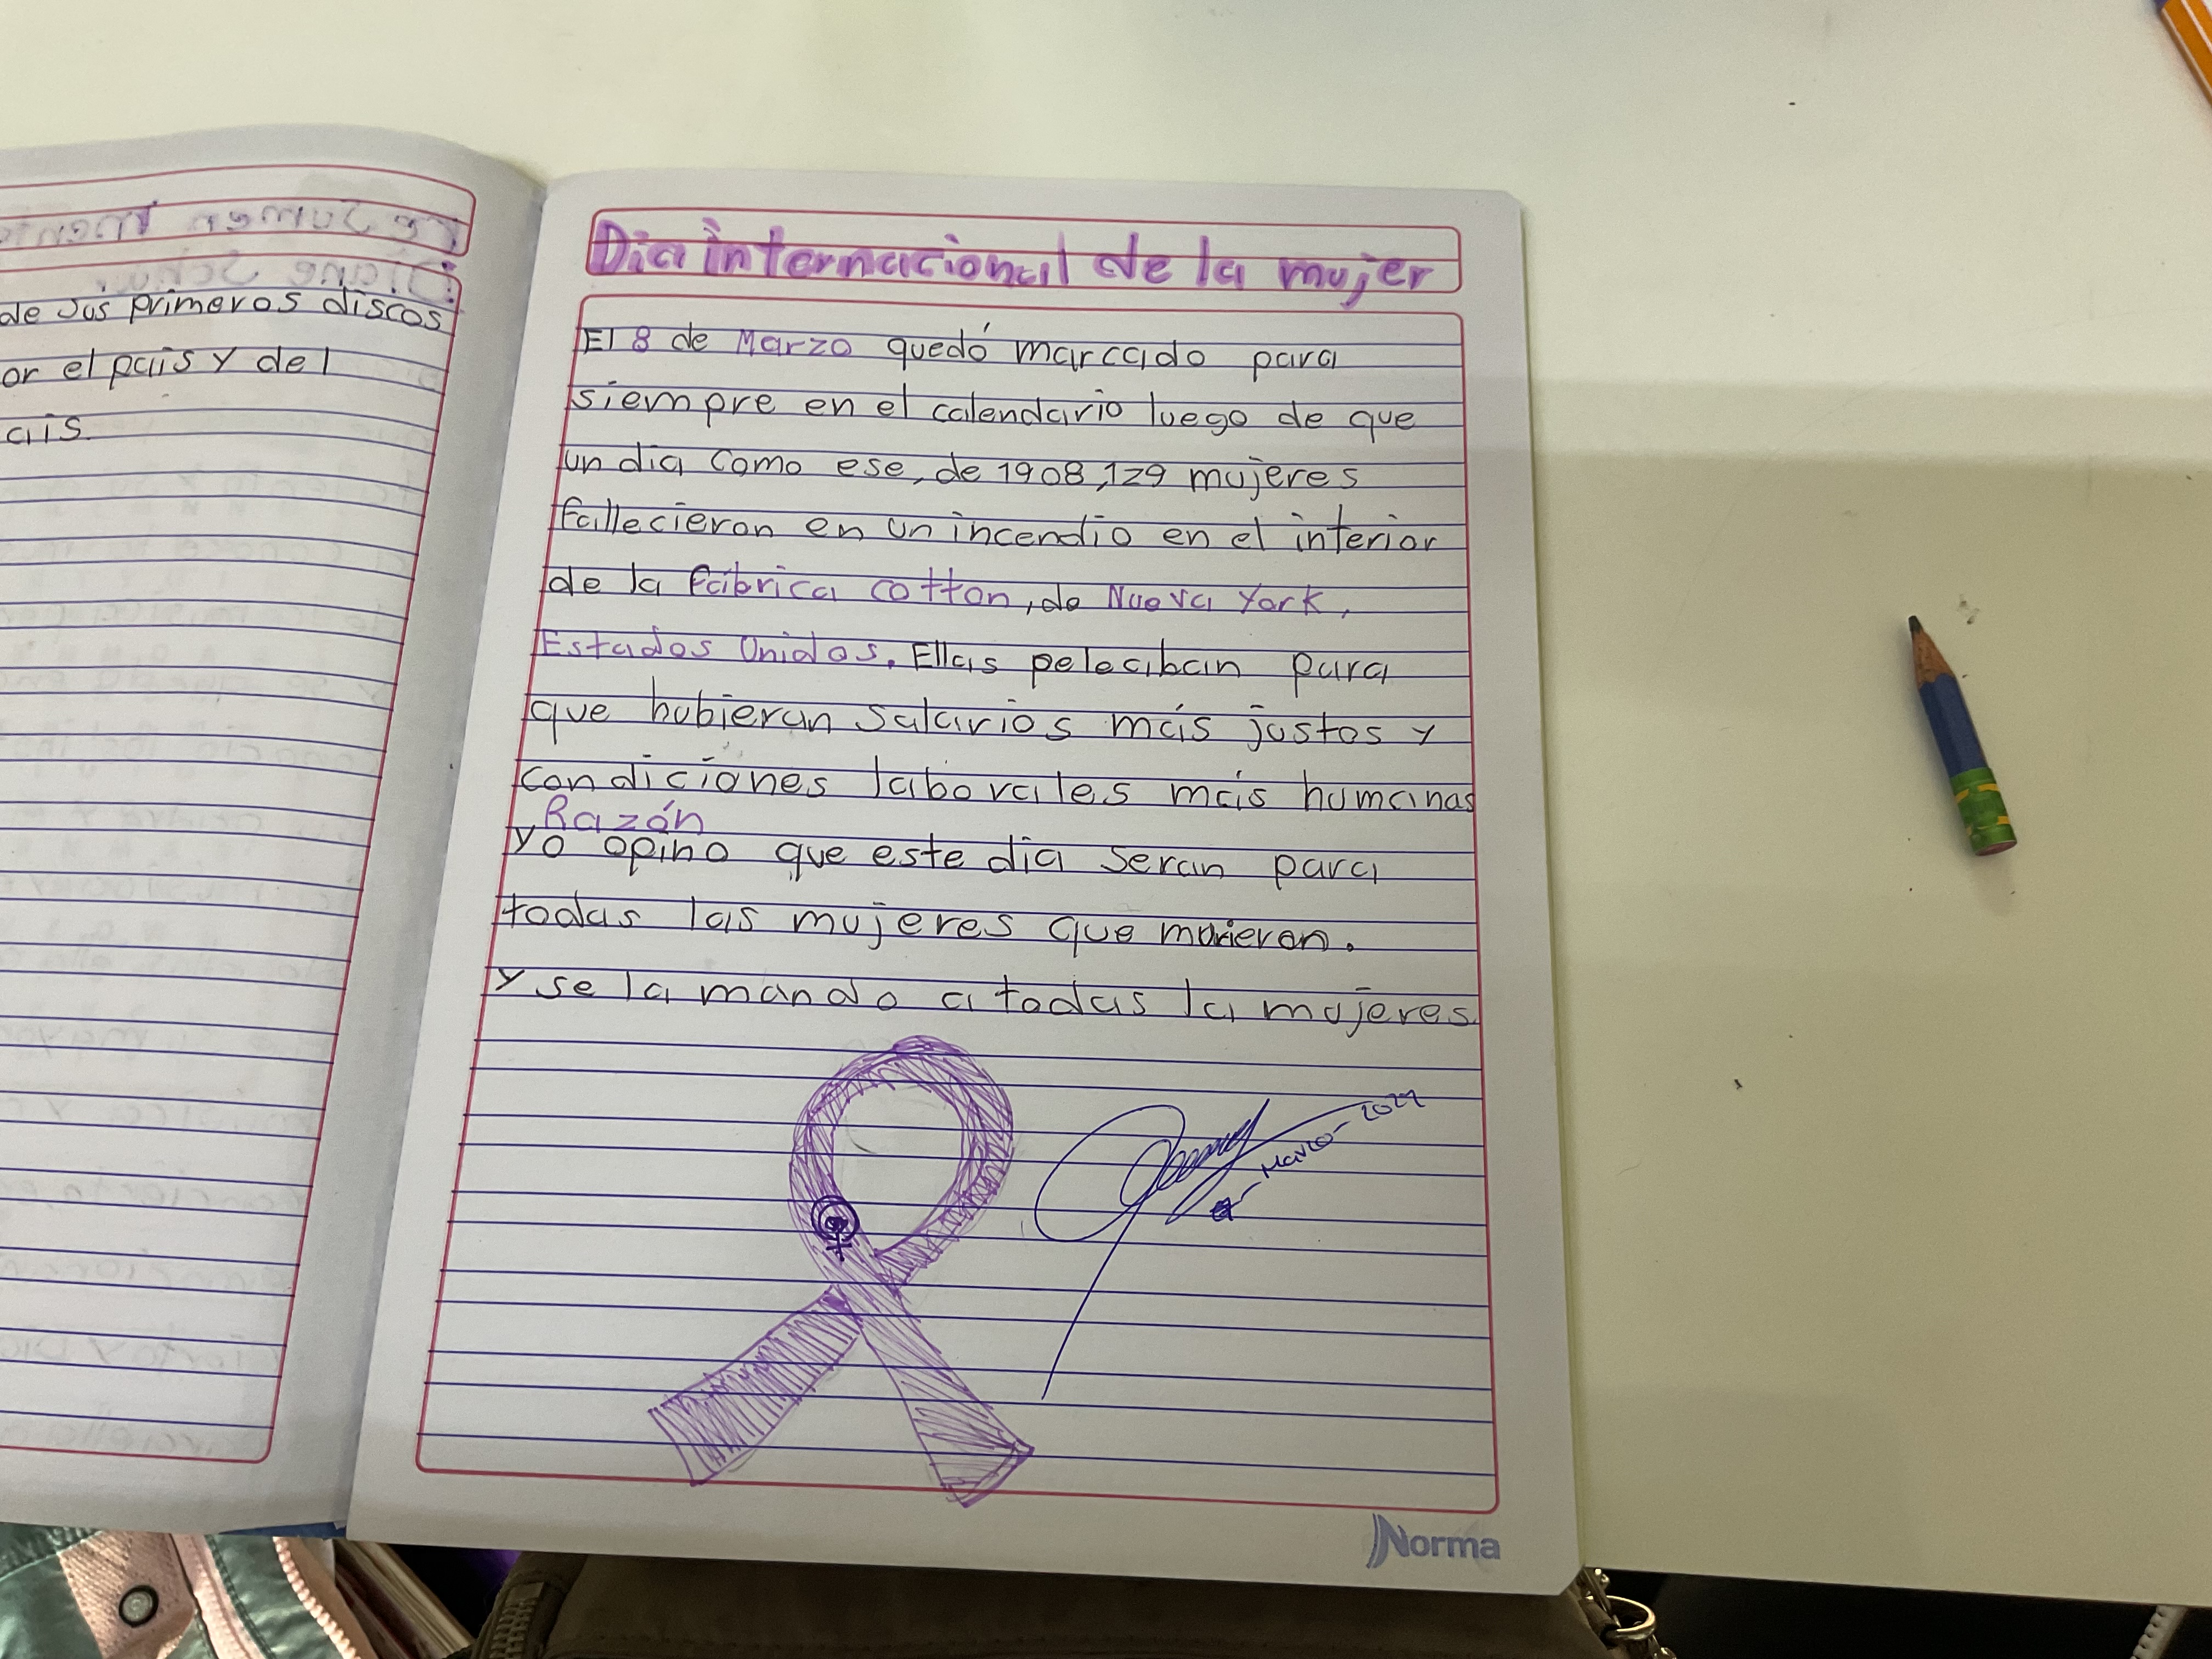 de sus primeros discos
or el pais y del
ais.
Dia internacional de la mujer
El 8 de Marzo quedó marcado para
siempre en el calendario luego de que
un dia como ese, de 1908, 129 mujeres
fallecieron en un incendio en el interior
de la fabrica cotton, de Nueva York,
Estados Unidos. Ellas peleaban para
que hubieran salarios más justos y
condiciones laborales más humanas
Razón
yo opino que este dia seran para
todas las mujeres que murieron.
y se la mando a todas la mujeres
Marzo-2022
Norma